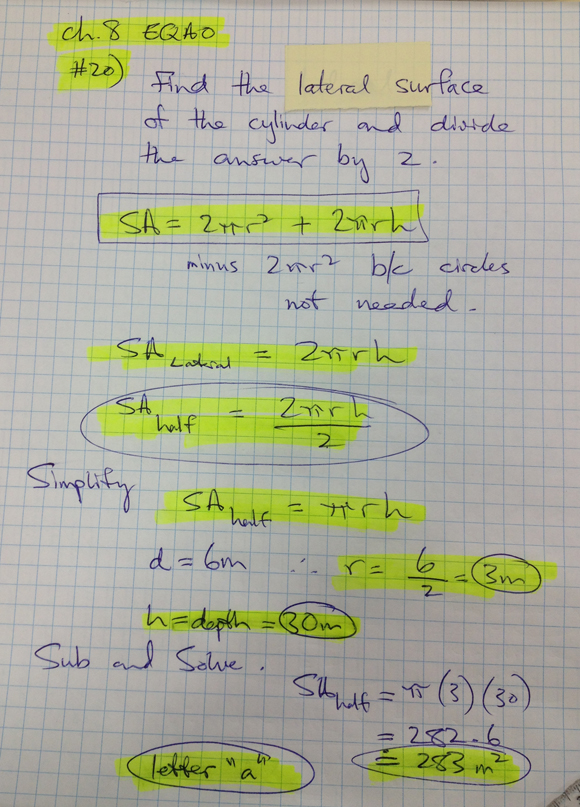 ch.8 EQAO
#20)
Find the lateral surface
of the cylinder and divide
the answer by 2.
SA = 2πr² + 2πrh
minus 2πr² b/c circles
not needed.
SA Lateral = 2πrh
SA half = 2πrh / 2
Simplify
SA half = πrh
d = 6m ∴ r = 6/2 = 3m
h = depth = 30m
Sub and Solve.
SA half = π(3)(30)
= 282.6
= 283 m²
letter "a"